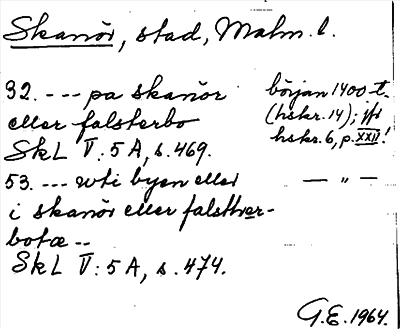 Skanör, stad, Malm. l.
32. --- pa skanør början 1400-t.
eller falsterbo (hskr. 14); jfr
SkL V: 5 A, s. 469. hskr. 6, p. XXII!
53. --- vti byen eller — „ —
i skanör eller falsther-
botæ --
SkL V: 5 A, s. 474.
G.E. 1964.